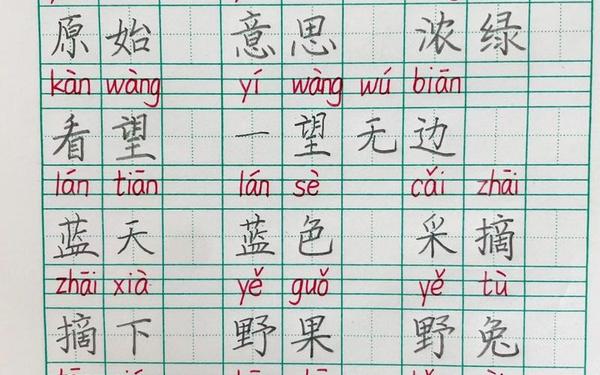 原始 意思 浓绿
kàn wàng yí wàng wú biān
看望 一望无边
lán tiān lán sè cǎi zhāi
蓝天 蓝色 采摘
zhāi xià yě guǒ yě tù
摘下 野果 野兔